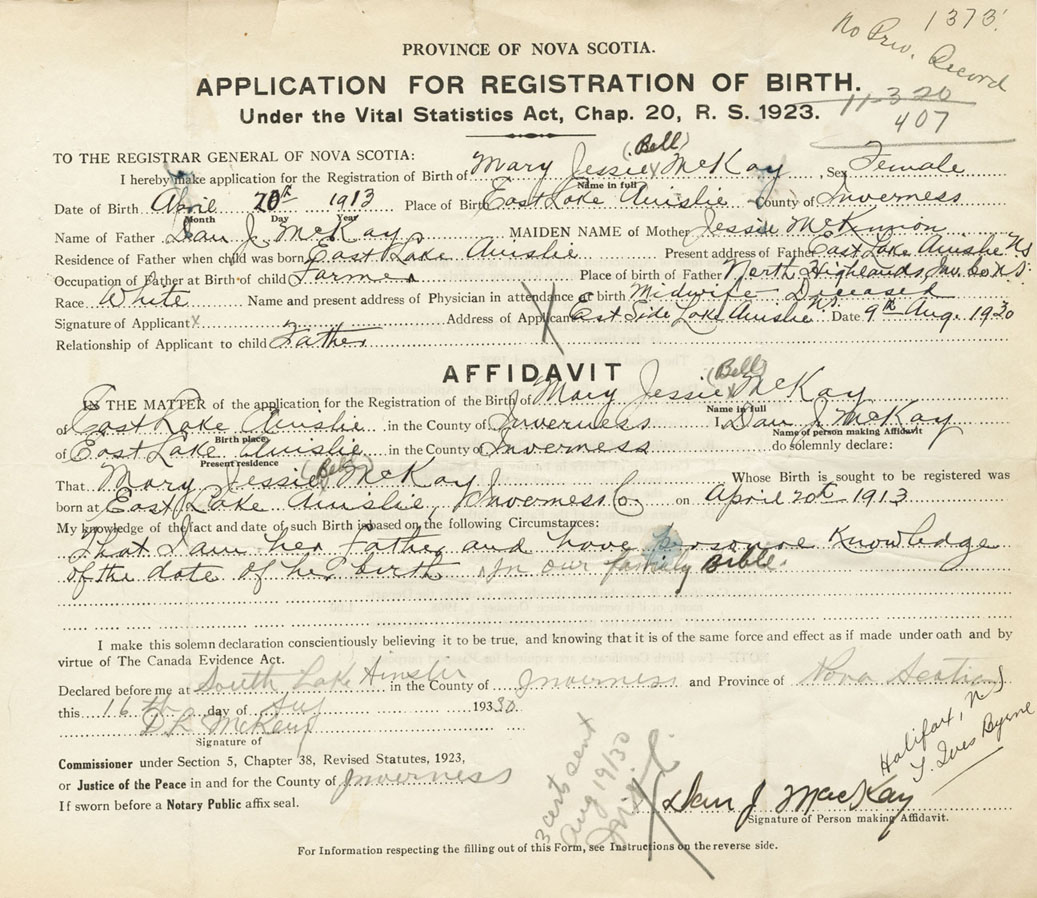 1373
No Prev. Record
PROVINCE OF NOVA SCOTIA.
APPLICATION FOR REGISTRATION OF BIRTH.
11-3-20
Under the Vital Statistics Act, Chap. 20, R. S. 1923.
407
TO THE REGISTRAR GENERAL OF NOVA SCOTIA:
I hereby make application for the Registration of Birth of Mary Jessie (Bell) McKay, Sex Female
Name in full
Date of Birth April 20th 1913 Place of Birth East Lake Ainslie County of Inverness
Month Day Year
Name of Father Dan J. McKay MAIDEN NAME of Mother Jessie McKinnon
Residence of Father when child was born East Lake Ainslie Present address of Father East Lake Ainslie N S
Occupation of Father at Birth of child Farmer Place of birth of Father North Highlands, Inv. Co. N.S.
Race White Name and present address of Physician in attendance at birth Midwife Diseased
Signature of Applicant X Address of Applicant East Side Lake Ainslie N.S. Date 9th Aug. 1930
Relationship of Applicant to child Father
AFFIDAVIT
IN THE MATTER of the application for the Registration of the Birth of Mary Jessie (Bell) McKay
Name in full
of East Lake Ainslie in the County of Inverness I, Dan J. McKay
Birth place Name of person making Affidavit
of East Lake Ainslie in the County of Inverness do solemnly declare:
Present residence
That Mary Jessie (Bell) McKay Whose Birth is sought to be registered was
born at East Lake Ainslie, Inverness Co. on April 20th 1913
My knowledge of the fact and date of such Birth is based on the following Circumstances:
That I am her Father and have personal Knowledge
of the date of her birth in our family Bible.
I make this solemn declaration conscientiously believing it to be true, and knowing that it is of the same force and effect as if made under oath and by
virtue of The Canada Evidence Act.
Declared before me at South Lake Ainslie in the County of Inverness and Province of Nova Scotia
this 16th day of Aug 1930
D L McKay
Signature of
Commissoner under Section 5, Chapter 38, Revised Statutes, 1923,
or Justice of the Peace in and for the County of Inverness
If sworn before a Notary Public affix seal.
3 certs sent
Aug 19/30
Halifax, N.S
X Dan J. MacKay
Signature of Person making Affidavit.
For Information respecting the filling out of this Form, see Instructions on the reverse side.